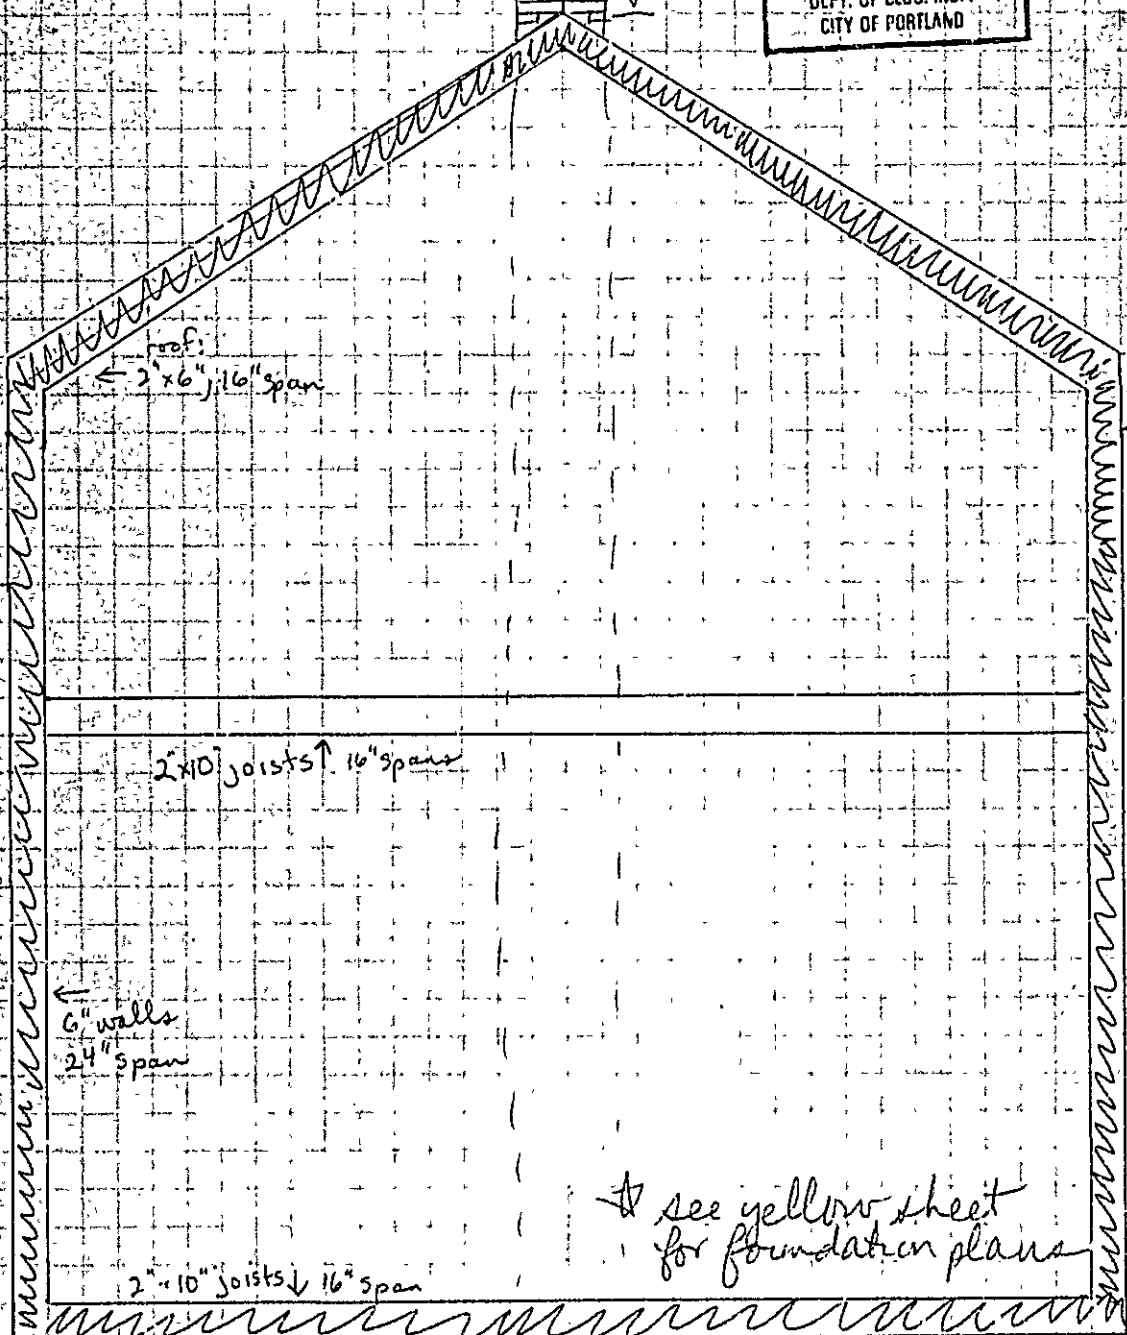 CITY OF PORTLAND
roof:
← 2"x6", 16" span
2"x10" joists ↑ 16" spans
←
6" walls
24" span
see yellow sheet
for foundation plans
2"x10" joists ↓ 16" span